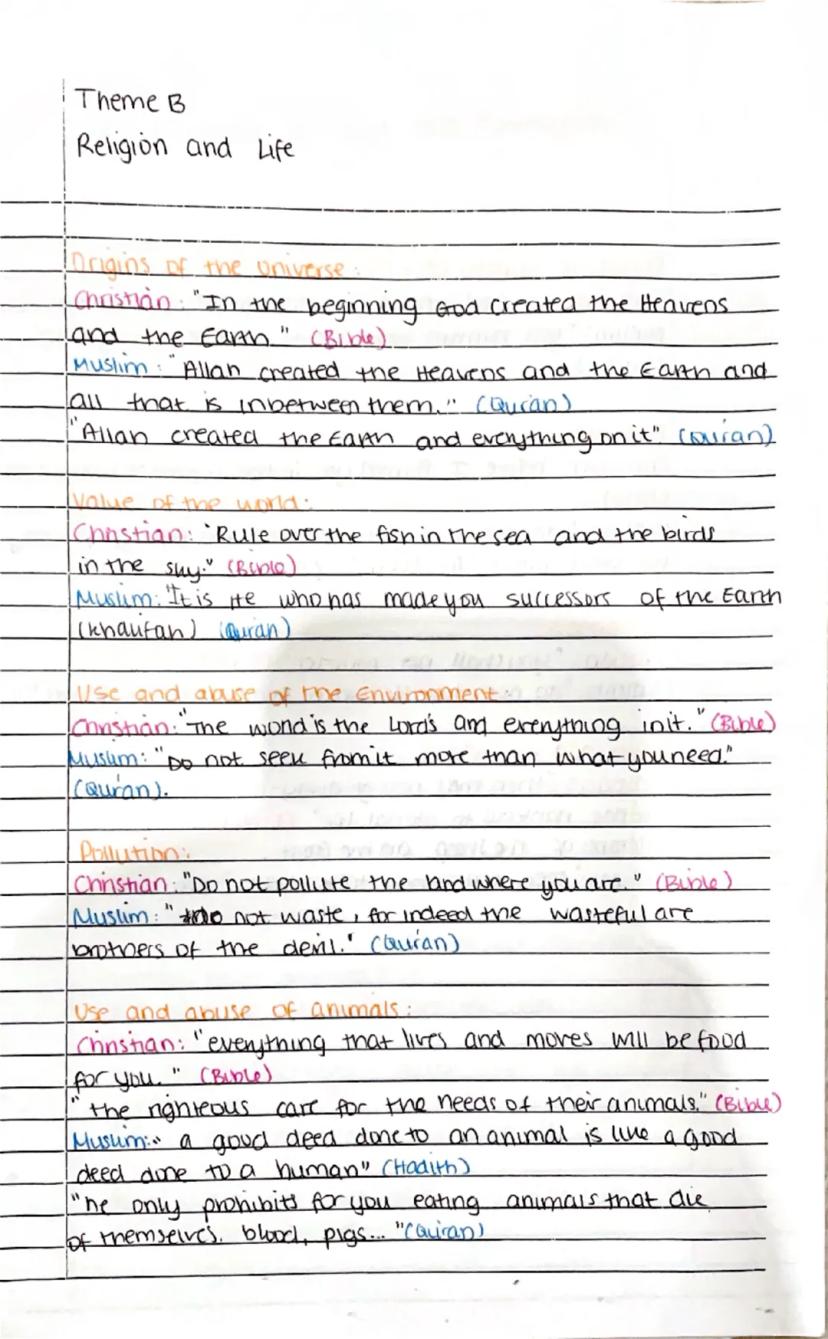 Theme B
Religion and Life
Origins of the Universe:
Christian: "In the beginning God created the Heavens
and the Earth." (Bible)
Muslim: "Allah created the Heavens and the Earth and
all that is inbetween them." (Quran)
"Allah created the Earth and everything on it" (Quran)
Value of the world:
Christian: "Rule over the fish in the sea and the birds
in the sky." (Bible)
Muslim: "It is He who has made you successors of the Earth
(Khalifah) (Quran)
Use and abuse of the Environment
Christian: "The world is the Lord's and everything in it." (Bible)
Muslim: "Do not seek from it more than what you need."
(Quran).
Pollution:
Christian: "Do not pollute the land where you are." (Bible)
Muslim: "do not waste, for indeed the wasteful are
brothers of the devil." (Quran)
Use and abuse of animals:
Christian: "everything that lives and moves will be food
for you." (Bible)
"the righteous care for the needs of their animals." (Bible)
Muslim: "a good deed done to an animal is like a good
deed done to a human" (Hadith)
"he only prohibits for you eating animals that die
of themselves, blood, pigs... "(Quran)